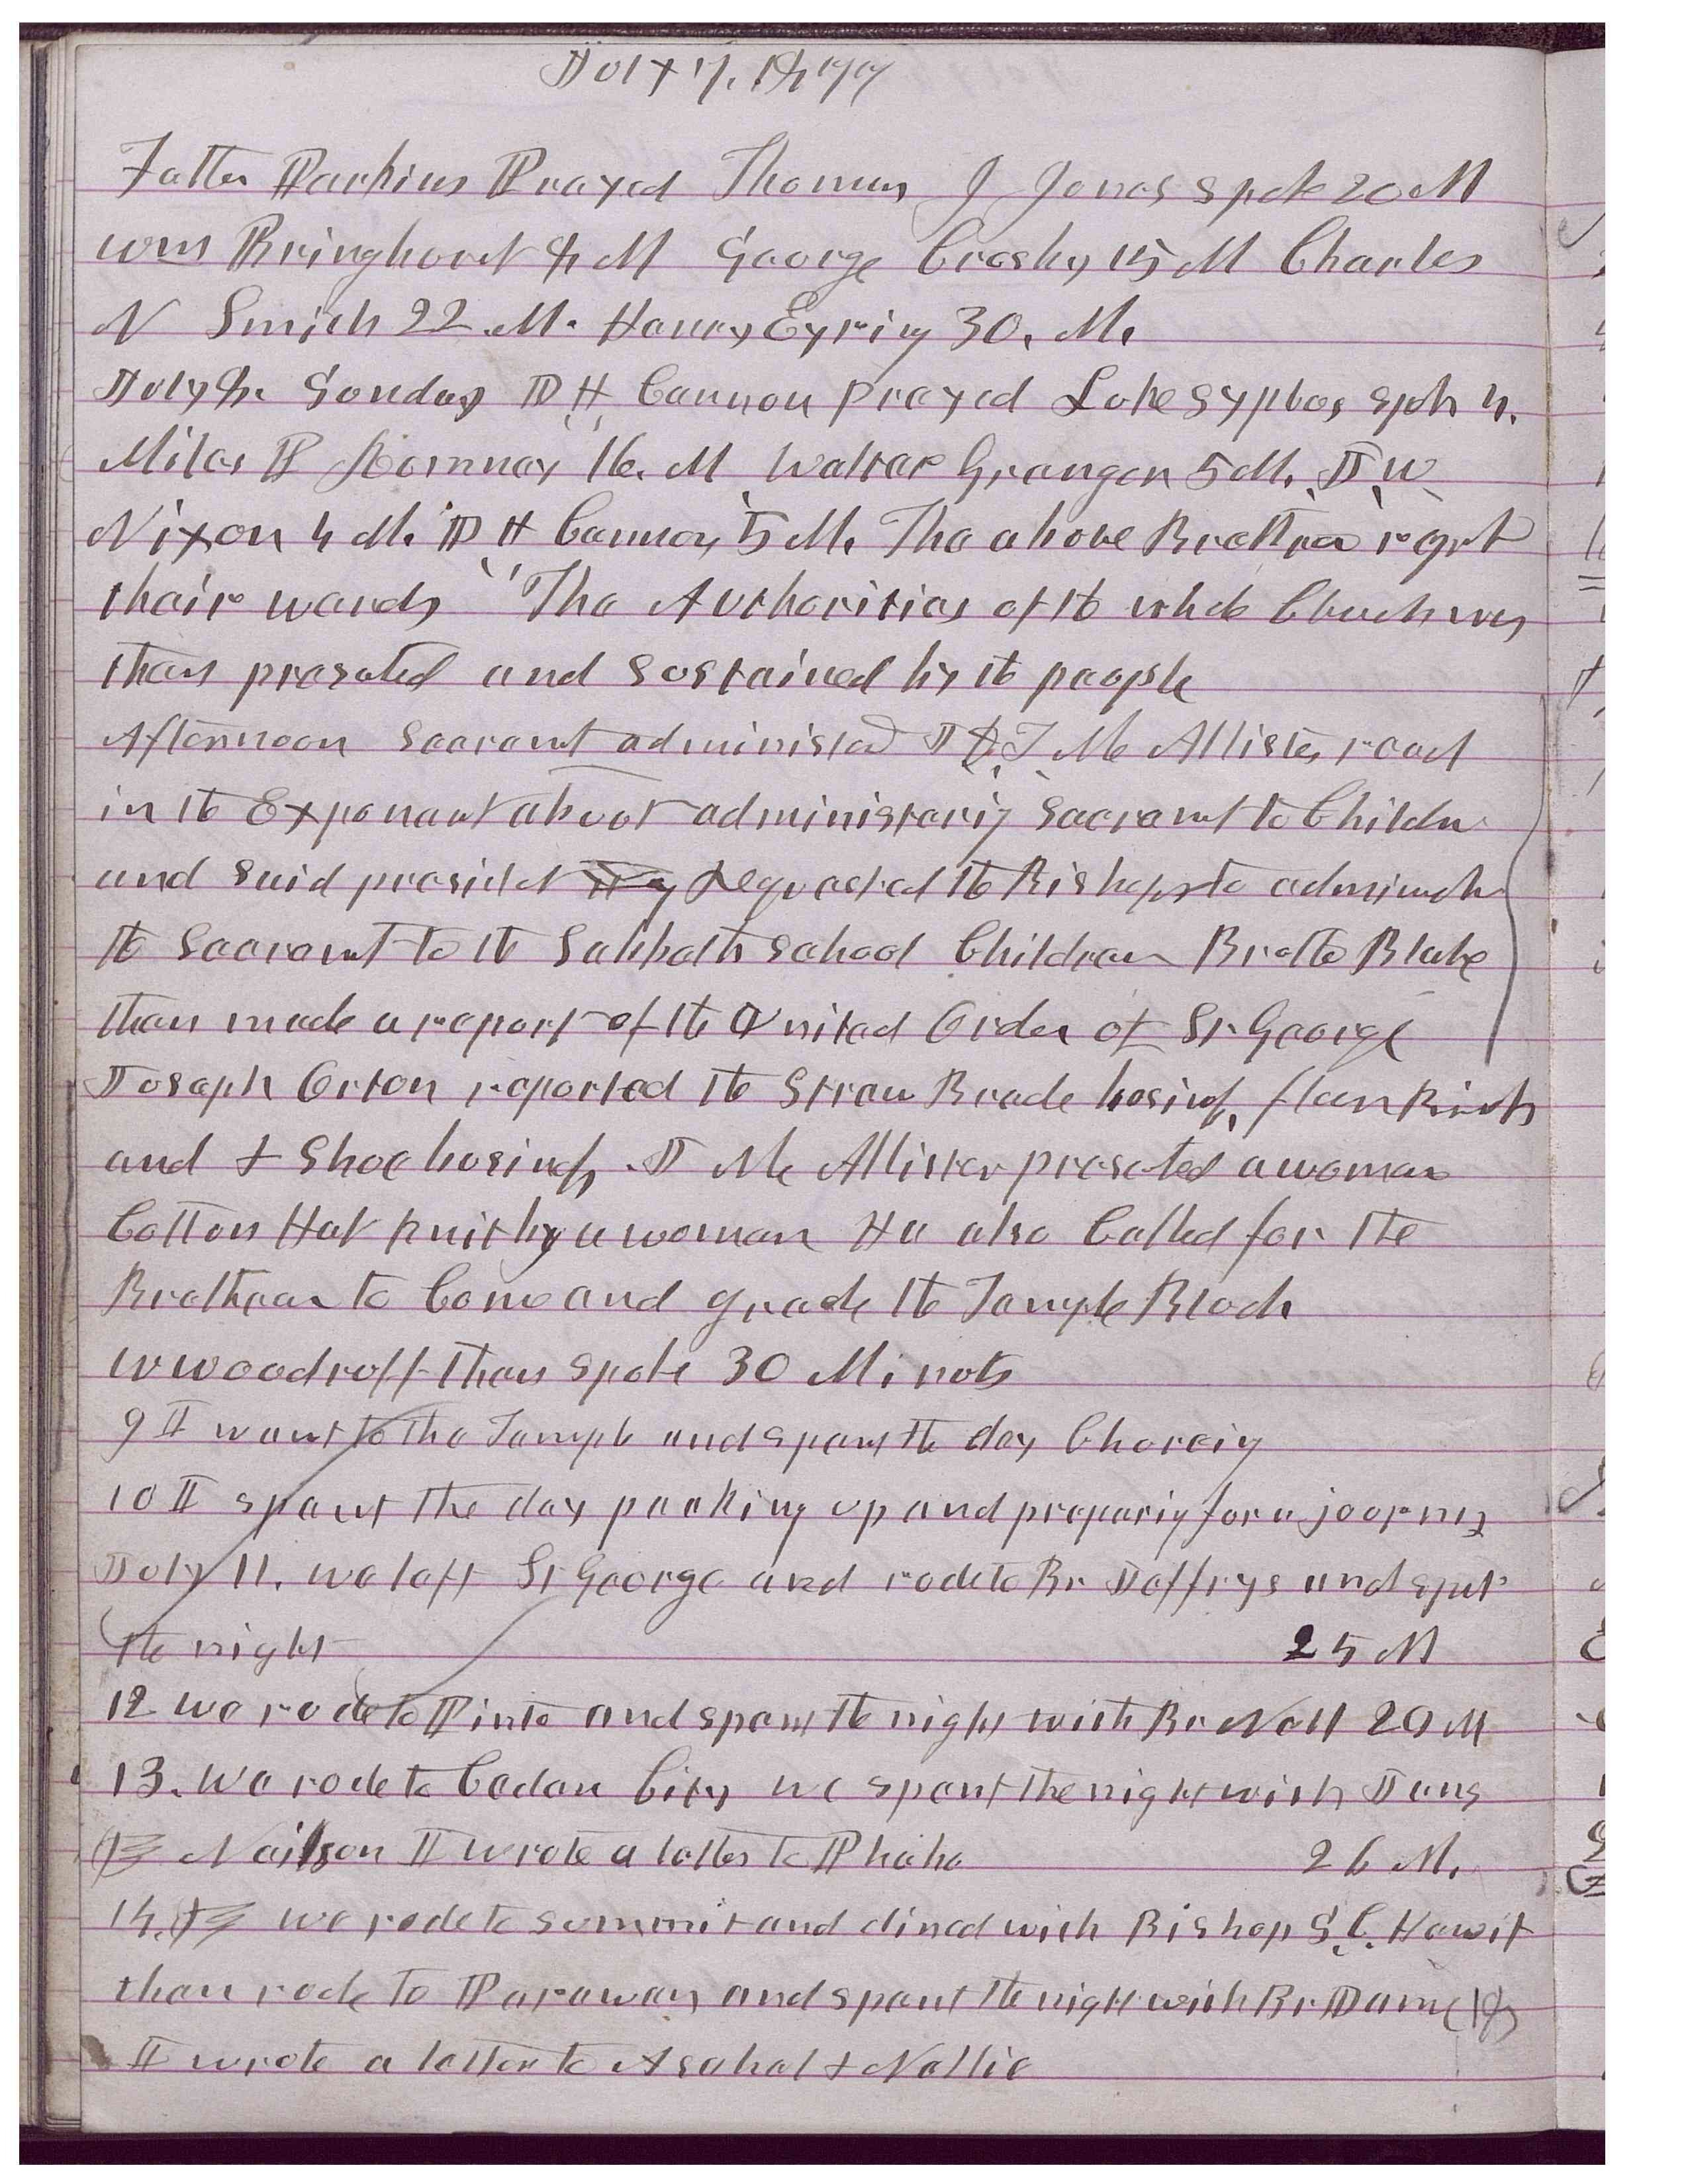 July 7, 1877
Father Perkins Prayed Thomas J Jones spoke 20 M
wm Bringhurst 8 M George Crosby 15 M Charles
N Smith 22. M. Henry Eyring 30. M.
July 8. Sunday D H Cannon prayed Luke Syphus spok 4.
Miles P Romney 16. M Walter Granger 5 M. J W
Nixon 4 M. D H Cannon 5 M. The above Brethren reprt
their wards The Authorities of the whole Church was
then presented and Sustained by the people
Afternoon Sacrament administed J D T Mc Allister read
in the Exponant about administering Sacrament to Childn
and said presidet Requested the Bishops to administr
the Sacrament to the Sabbath School Children Brother Blake
then made a report of the United Order of St George
Joseph Orton reported the Straw Brade busings,
and + Shoe busings. J Mc Allister presented a woman
Cotton Hat knit by a woman He also Called for the
Brethren to Come and grade the Temple Block
W Woodruff then spoke 30 Minuts
9 I went to the Temple and spent the day Choreing
10 I spent the day packing up and preparing for a journy
July 11. we left St George and rode to Br Jeffrys and spent
the night 25 M
12 We rode to Pinto and spent the night with Br Nell 29 M
13. We rode to Cedar City we spent the night with Jens
Neilson I wrote a letter to Phebe 26 M.
14. we rode to Summit and dined with Bishop S. C. Hewit
then rode to Parawan and spent the night with Br Dame (18)
I wrote a letter to Asahel + Nellie